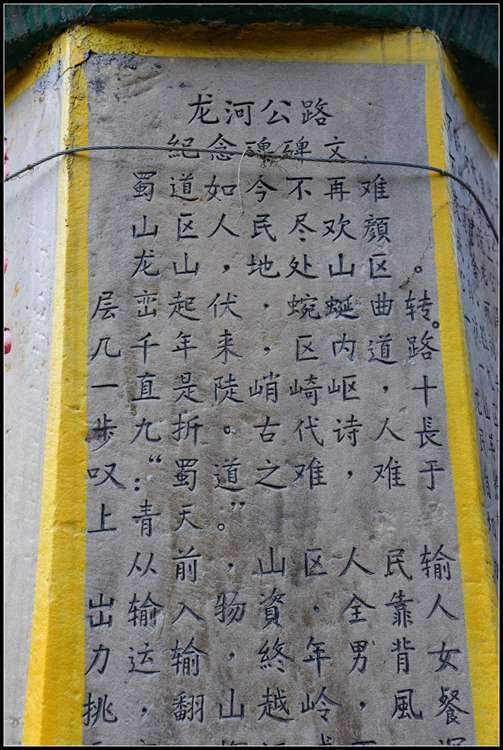 龙河公路
纪念碑碑文
蜀道如今不再难
山区人民尽欢顔
龙山，地处山区。
层峦起伏，蜿蜒曲转。
几千年来，区内道路
一直是陡峭崎岖，十
步九折。古代诗人長
叹：“蜀道之难难于
上青天。”
从前，山区人民输
出输入物資，全靠人
力运输，終年男背女
挑，翻山越岭，風餐